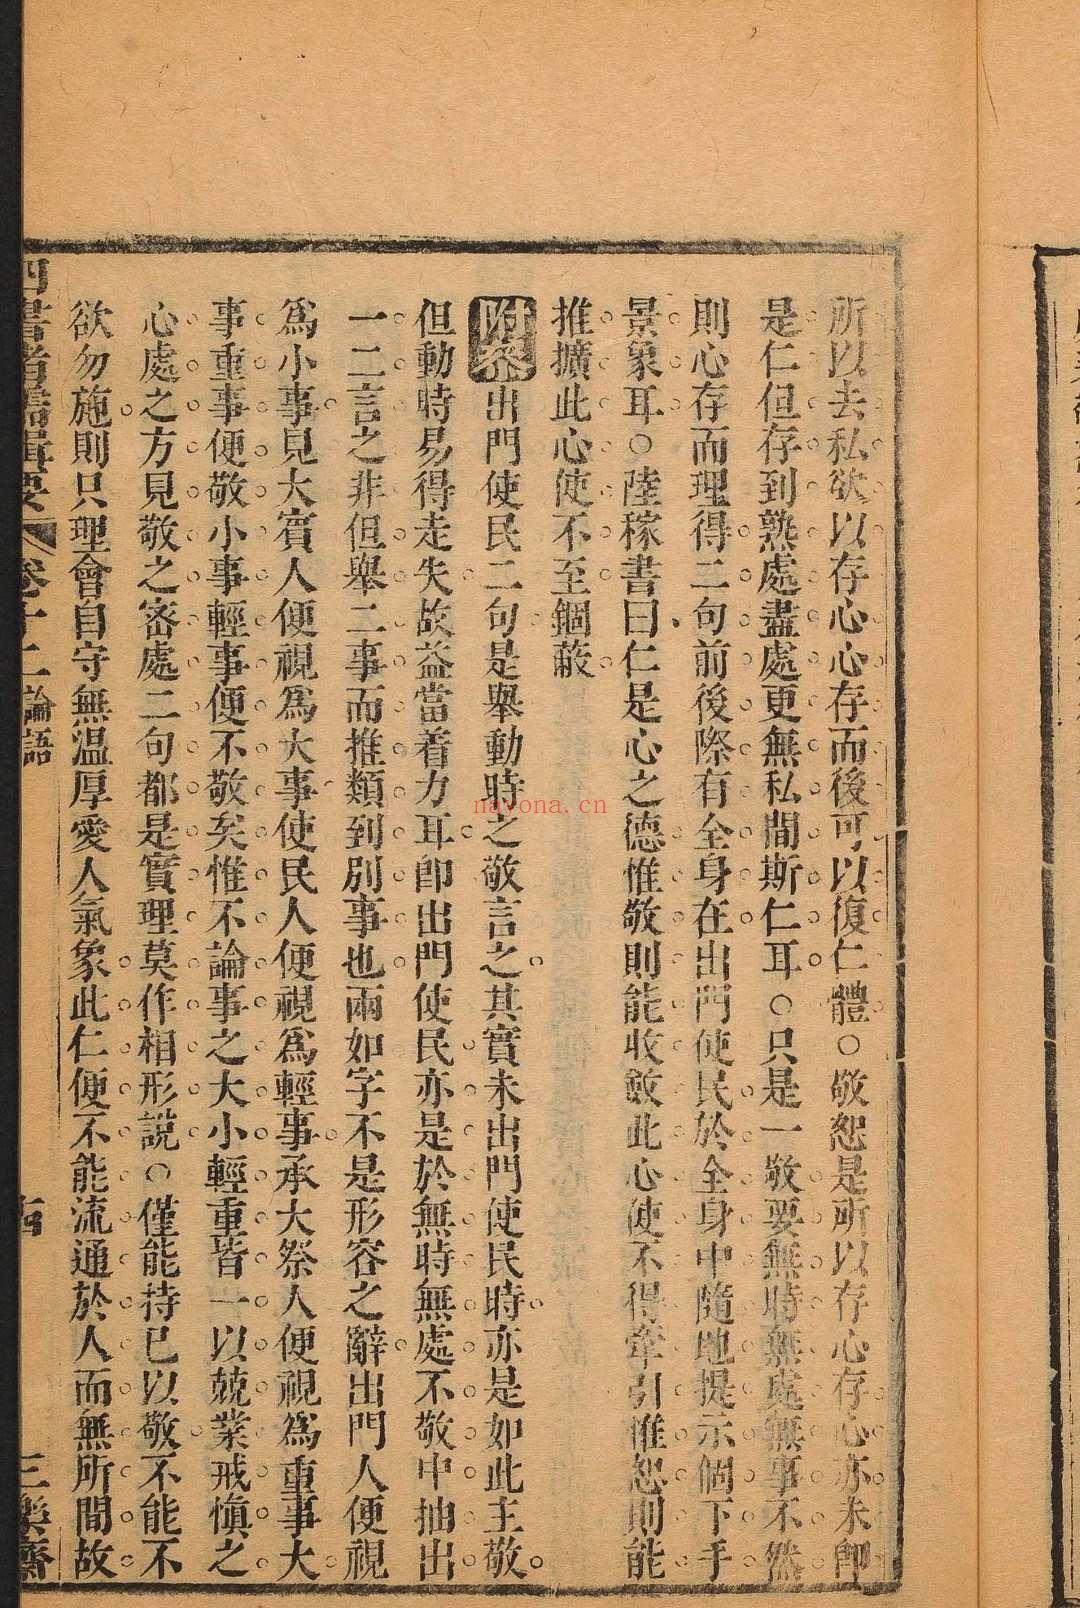 所以去私欲以存心心存而後可以復仁體○敬恕是所以存心存心亦未卽
是仁但存到熟處盡處更無私間斯仁耳○只是一敬要無時無處無事不然
則心存而理得二句前後際有全身在出門使民於全身中隨地提示個下手
景象耳○陸稼書曰仁是心之德惟敬則能收斂此心使不得牽引惟恕則能
推擴此心使不至錮蔽
附叅出門使民二句是舉動時之敬言之其實未出門使民時亦是如此主敬
但動時易得走失故益當着力耳卽出門使民亦是於無時無處不敬中抽出
一二言之非但舉二事而推類到別事也兩如字不是形容之辭出門人便視
爲小事見大賓人便視爲大事使民人便視爲輕事承大祭人便視爲重事大
事重事便敬小事輕事便不敬矣惟不論事之大小輕重皆一以兢業戒愼之
心處之方見敬之密處二句都是實理莫作相形說○僅能持已以敬不能不
欲勿施則只理會自守無温厚愛人氣象此仁便不能流通於人而無所間故
四書 輯要 卷十二論語 三樂齋
nayona.cn